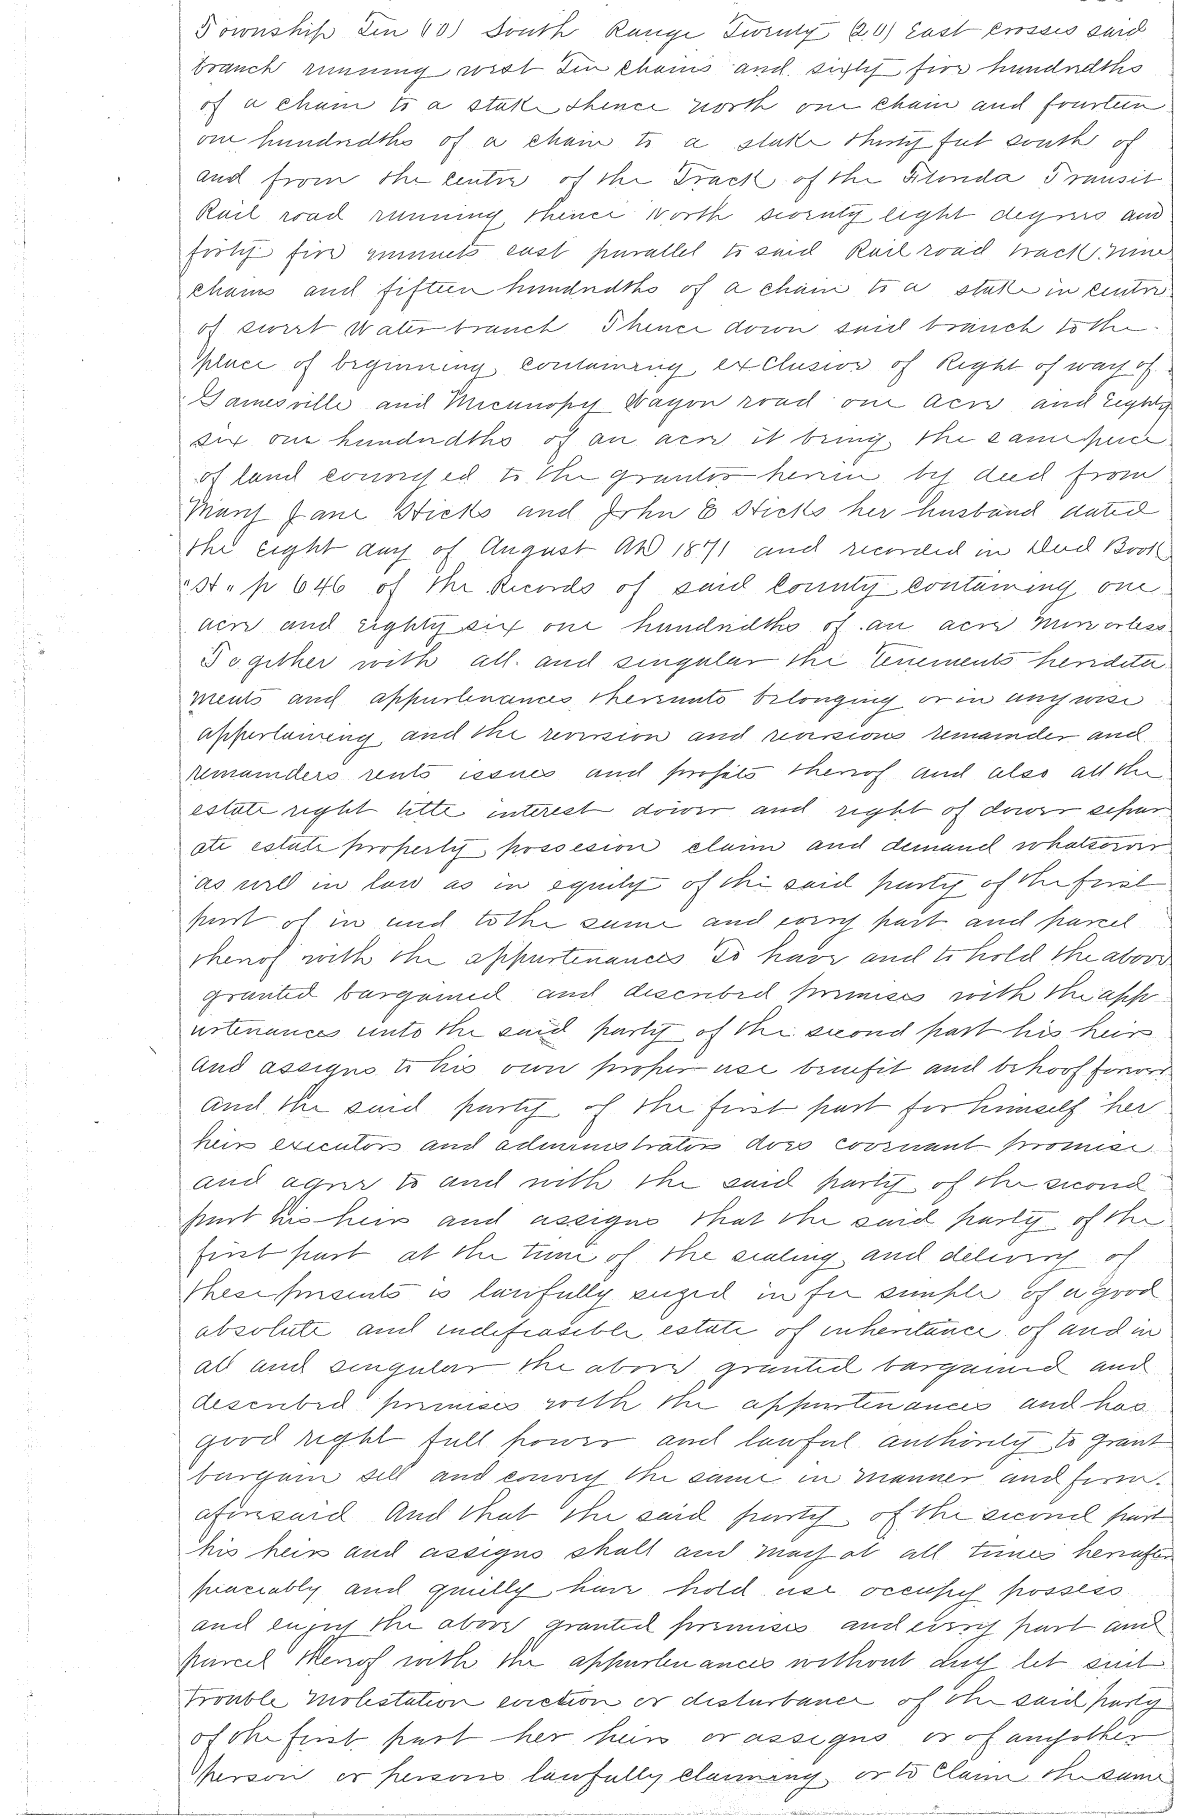 Township Ten (10) South Range Twenty (20) East crosses said
branch running west Ten chains and sixty five hundredths
of a chain to a stake thence north one chain and fourteen
one hundredths of a chain to a stake thirty feet south of
and from the centre of the Track of the Florida Transit
Rail road running thence North seventy eight degrees and
forty five minnets east parallel to said Rail road track nine
chains and fifteen hundredths of a chain to a stake in centre
of sweet Water branch Thence down said branch to the
place of beginning containing exclusive of Right of way of
Gainesville and Micanopy Wagon road one acre and Eighty
six one hundredths of an acre it being the same piece
of land conveyed to the grantor herein by deed from
Mary Jane Hicks and John E Hicks her husband dated
the eight day of August AD 1871 and recorded in Deed Book
"H" p 646 of the Records of said County containing one
acre and eighty six one hundredths of an acre more or less
Together with all and singular the tenements heredita
ments and appurtenances thereunto belonging or in any wise
appertaining and the reversion and reversions remainder and
remainders rents issues and profits thereof and also all the
estate right title interest dower and right of dower separ
ate estate property possesion claim and demand whatsoever
as well in law as in equity of the said party of the first
part of in and to the same and every part and parcel
thereof with the appurtenances To have and to hold the above
granted bargained and described premises with the app
urtenances unto the said party of the second part his heirs
and assigns to his own proper use benefit and behoof forever
and the said party of the first part for himself her
heirs executors and administrators does covenant promise
and agree to and with the said party of the second
part his heirs and assigns that the said party of the
first part at the time of the sealing and delivery of
these presents is lawfully siezed in fee simple of a good
absolute and indefeasible estate of inheritance of and in
all and singular the above granted bargained and
described premises with the appurtenances and has
good right full power and lawful authority to grant
bargain sell and convey the same in manner and form
aforesaid And that the said party of the second part
his heirs and assigns shall and may at all times hereafter
peaceably and quietly have hold use occupy possess
and enjoy the above granted premises and every part and
parcel thereof with the appurtenances without any let suit
trouble molestation eviction or disturbance of the said party
of the first part her heirs or assigns or of any other
person or persons lawfully claiming or to Claim the same